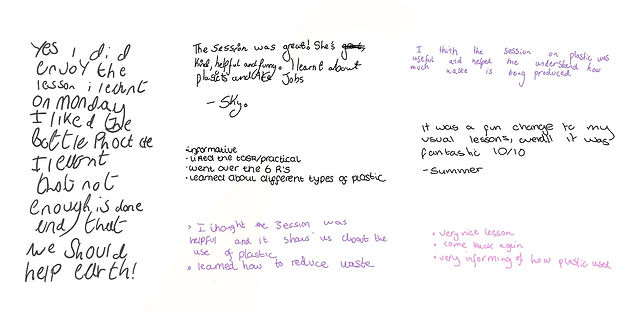 Yes i did
enjoy the
lesson i lernt
on monday
I liked the
bottle
I lernt
that not
enough is done
and that
we should
help earth!
The session was great! She's
kind, helpful and funny. I learnt about
plastics and Jobs
- Sky.
I think the session on plastic was
useful and helped me understand how
much waste is being produced
informative
• liked the task/practical
• went over the 6 R's
• learned about different types of plastic
It was a fun change to my
usual lessons, overall it was
fantastic 10/10
- Summer
• I thought the session was
helpful and it show us about the
use of plastic
• learned how to reduce waste
• very nice lesson
• come back again
• very informing of how plastic used